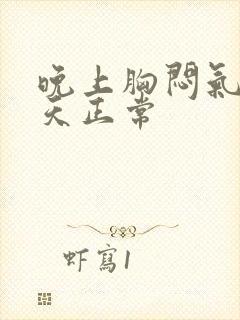 晚上胸悶氣
天正常
虾寫1